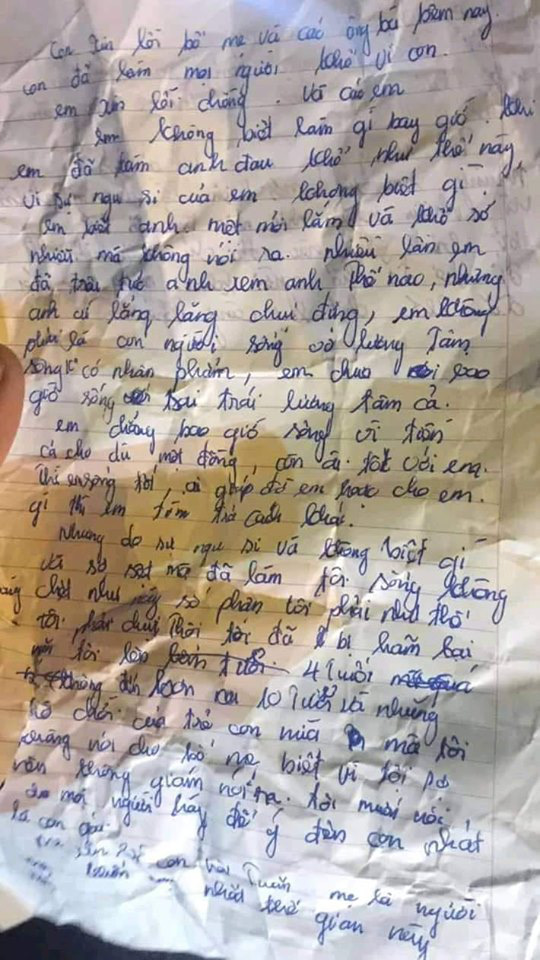 Con xin lỗi bố mẹ và các ông bà hôm nay.
con đã làm mọi người khổ vì con.
em xin lỗi chồng. và các em
em không biết làm gì bay giờ. khi
em đã làm anh đau khổ như thế này,
vì sự ngu si của em. không biết gì.
em biết anh mệt mỏi lắm và khổ sở
nhiều mà không nói ra. nhiều lần em
đã anh xem anh thế nào, nhưng
anh cứ lẳng lặng chịu đựng, em không
phải là con người sống vô lương Tâm
sống có nhân phẩm, em chưa bao
giờ sống trái lương tâm cả.
em chẳng bao giờ sống vì tiền
cả cho dù một đồng, còn ai tốt với em.
Thì em sống tốt, ai giúp đỡ em hoặc cho em.
gì thì em tìm trả cách khác.
Nhưng do sự ngu si và không biết gì
và sợ sệt mà đã làm tôi sống không
chết như này số phận tôi phải như thế
tôi phải chịu thôi tôi đã bị hãm hại
tôi lên 4 Tuổi
hơn 10 Tuổi và những
trò chơi của trẻ con nữa mà tôi
không nói cho bố mẹ biết vì tôi
vẫn không giám nói ra. tôi muốn nói,
mọi người hãy để ý đến con nhất
là con gái.
con mẹ là người
nhất thế gian này